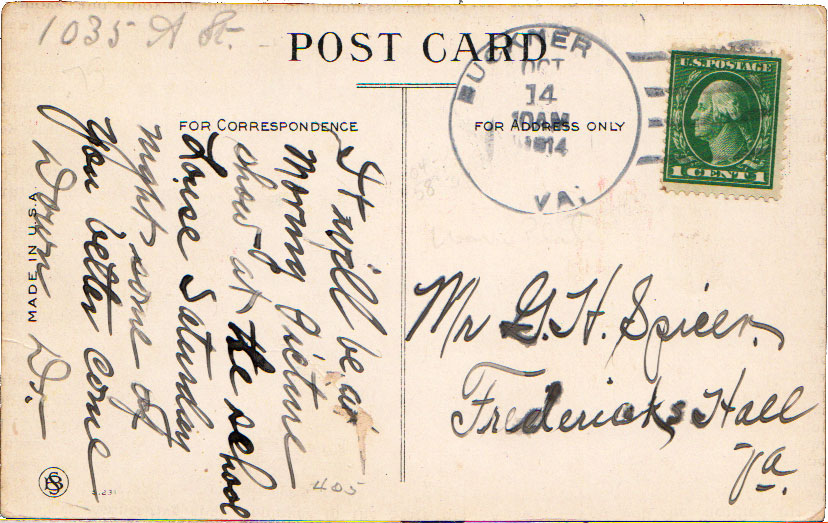 1035 A St.
POST CARD
BUCKNER
OCT
14
10AM
1914
VA.
U.S. POSTAGE
1 CENT 1
FOR CORRESPONDENCE
FOR ADDRESS ONLY
It will be a
Moving Picture
show at the school
Louise Saturday
night some of
You better come
Down D.
Mr G. H. Spicer
Fredericks Hall
Va.
MADE IN U.S.A.
405